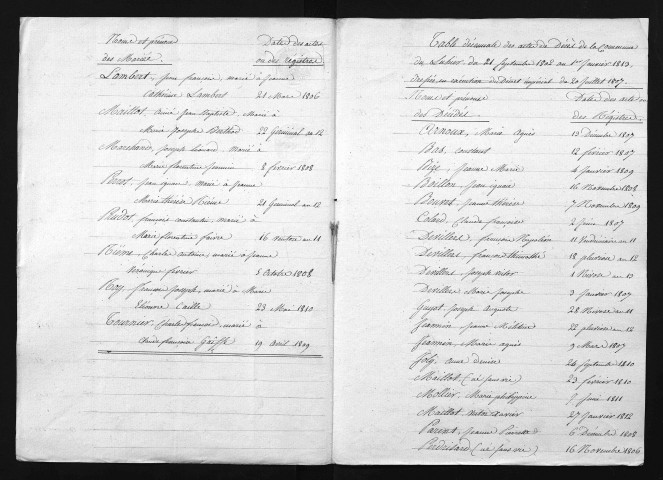 Noms et prénoms Date des actes
des Mariés. ou des Registres
Lambert, jean françois, marié à jeanne
Catherine Lambert 21 Mars 1806
Maillot, aimé jean Baptiste, Marié à
Marie josephe 22 Germinal an 12
Marchand, joseph Leonard, marié à
Marie florentine 8 février 1808
Perrot, jean ignace, marié à jeanne
Marie therèse 21 Germinal an 12
françois constantin, marié à
Marie florentine faivre 16 ventose an 11
Charles antoine, marié à jeanne
veronique 5 Octobre 1808
Roy, françois joseph, marié à Marie
Eléonore Caille 23 Mai 1810
Tournier, Charles françois, marié à
Claude françoise 19 avril 1809
Table décennale des actes de Décès de la Commune
du 21 Septembre 1802 au 1er janvier 1813,
en exécution du Décret impérial du 20 juillet 1807.
Noms et prénoms Dates des actes ou
des Décédés. des Registres.
Marie agnès 13 Décembre 1807
Bas, constant 12 février 1807
jeanne Marie 4 janvier 1809
Boillon, jean ignace 16 Novembre 1808
jeanne thérèse 7 Novembre 1809
Colard, Claude françois 2 juin 1807
Devillers, françois 11 Vendémiaire an 11
Devillers, françois 18 pluviose an 12
Devillers, joseph victor 1 Nivose an 13
Devillers Marie josephe 3 janvier 1807
Guyot, joseph Auguste 28 Nivose an 11
Jeannin, jeanne 22 pluviose an 12
Jeannin, Marie agnès 9 Mars 1807
Joly, anne denise 24 Septembre 1810
Maillot, (né sans vie) 23 février 1810
Mollier, Marie philippine 2 juin 1811
Maillot, xavier 27 janvier 1812
Parent, jeanne Pierrette 6 Décembre 1808
(né sans vie) 16 Novembre 1806